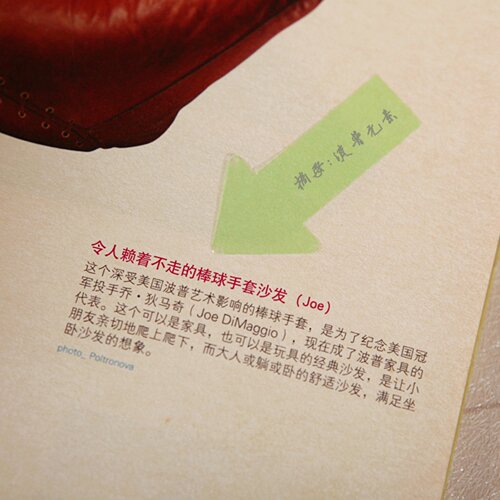 摘要:波普元素
令人赖着不走的棒球手套沙发（Joe）
这个深受美国波普艺术影响的棒球手套，是为了纪念美国冠
军投手乔·狄马奇（Joe DiMaggio），现在成了波普家具的
代表。这个可以是家具，也可以是玩具的经典沙发，是让小
朋友亲切地爬上爬下，而大人或躺或卧的舒适沙发，满足坐
卧沙发的想象。
photo_ Poltronova